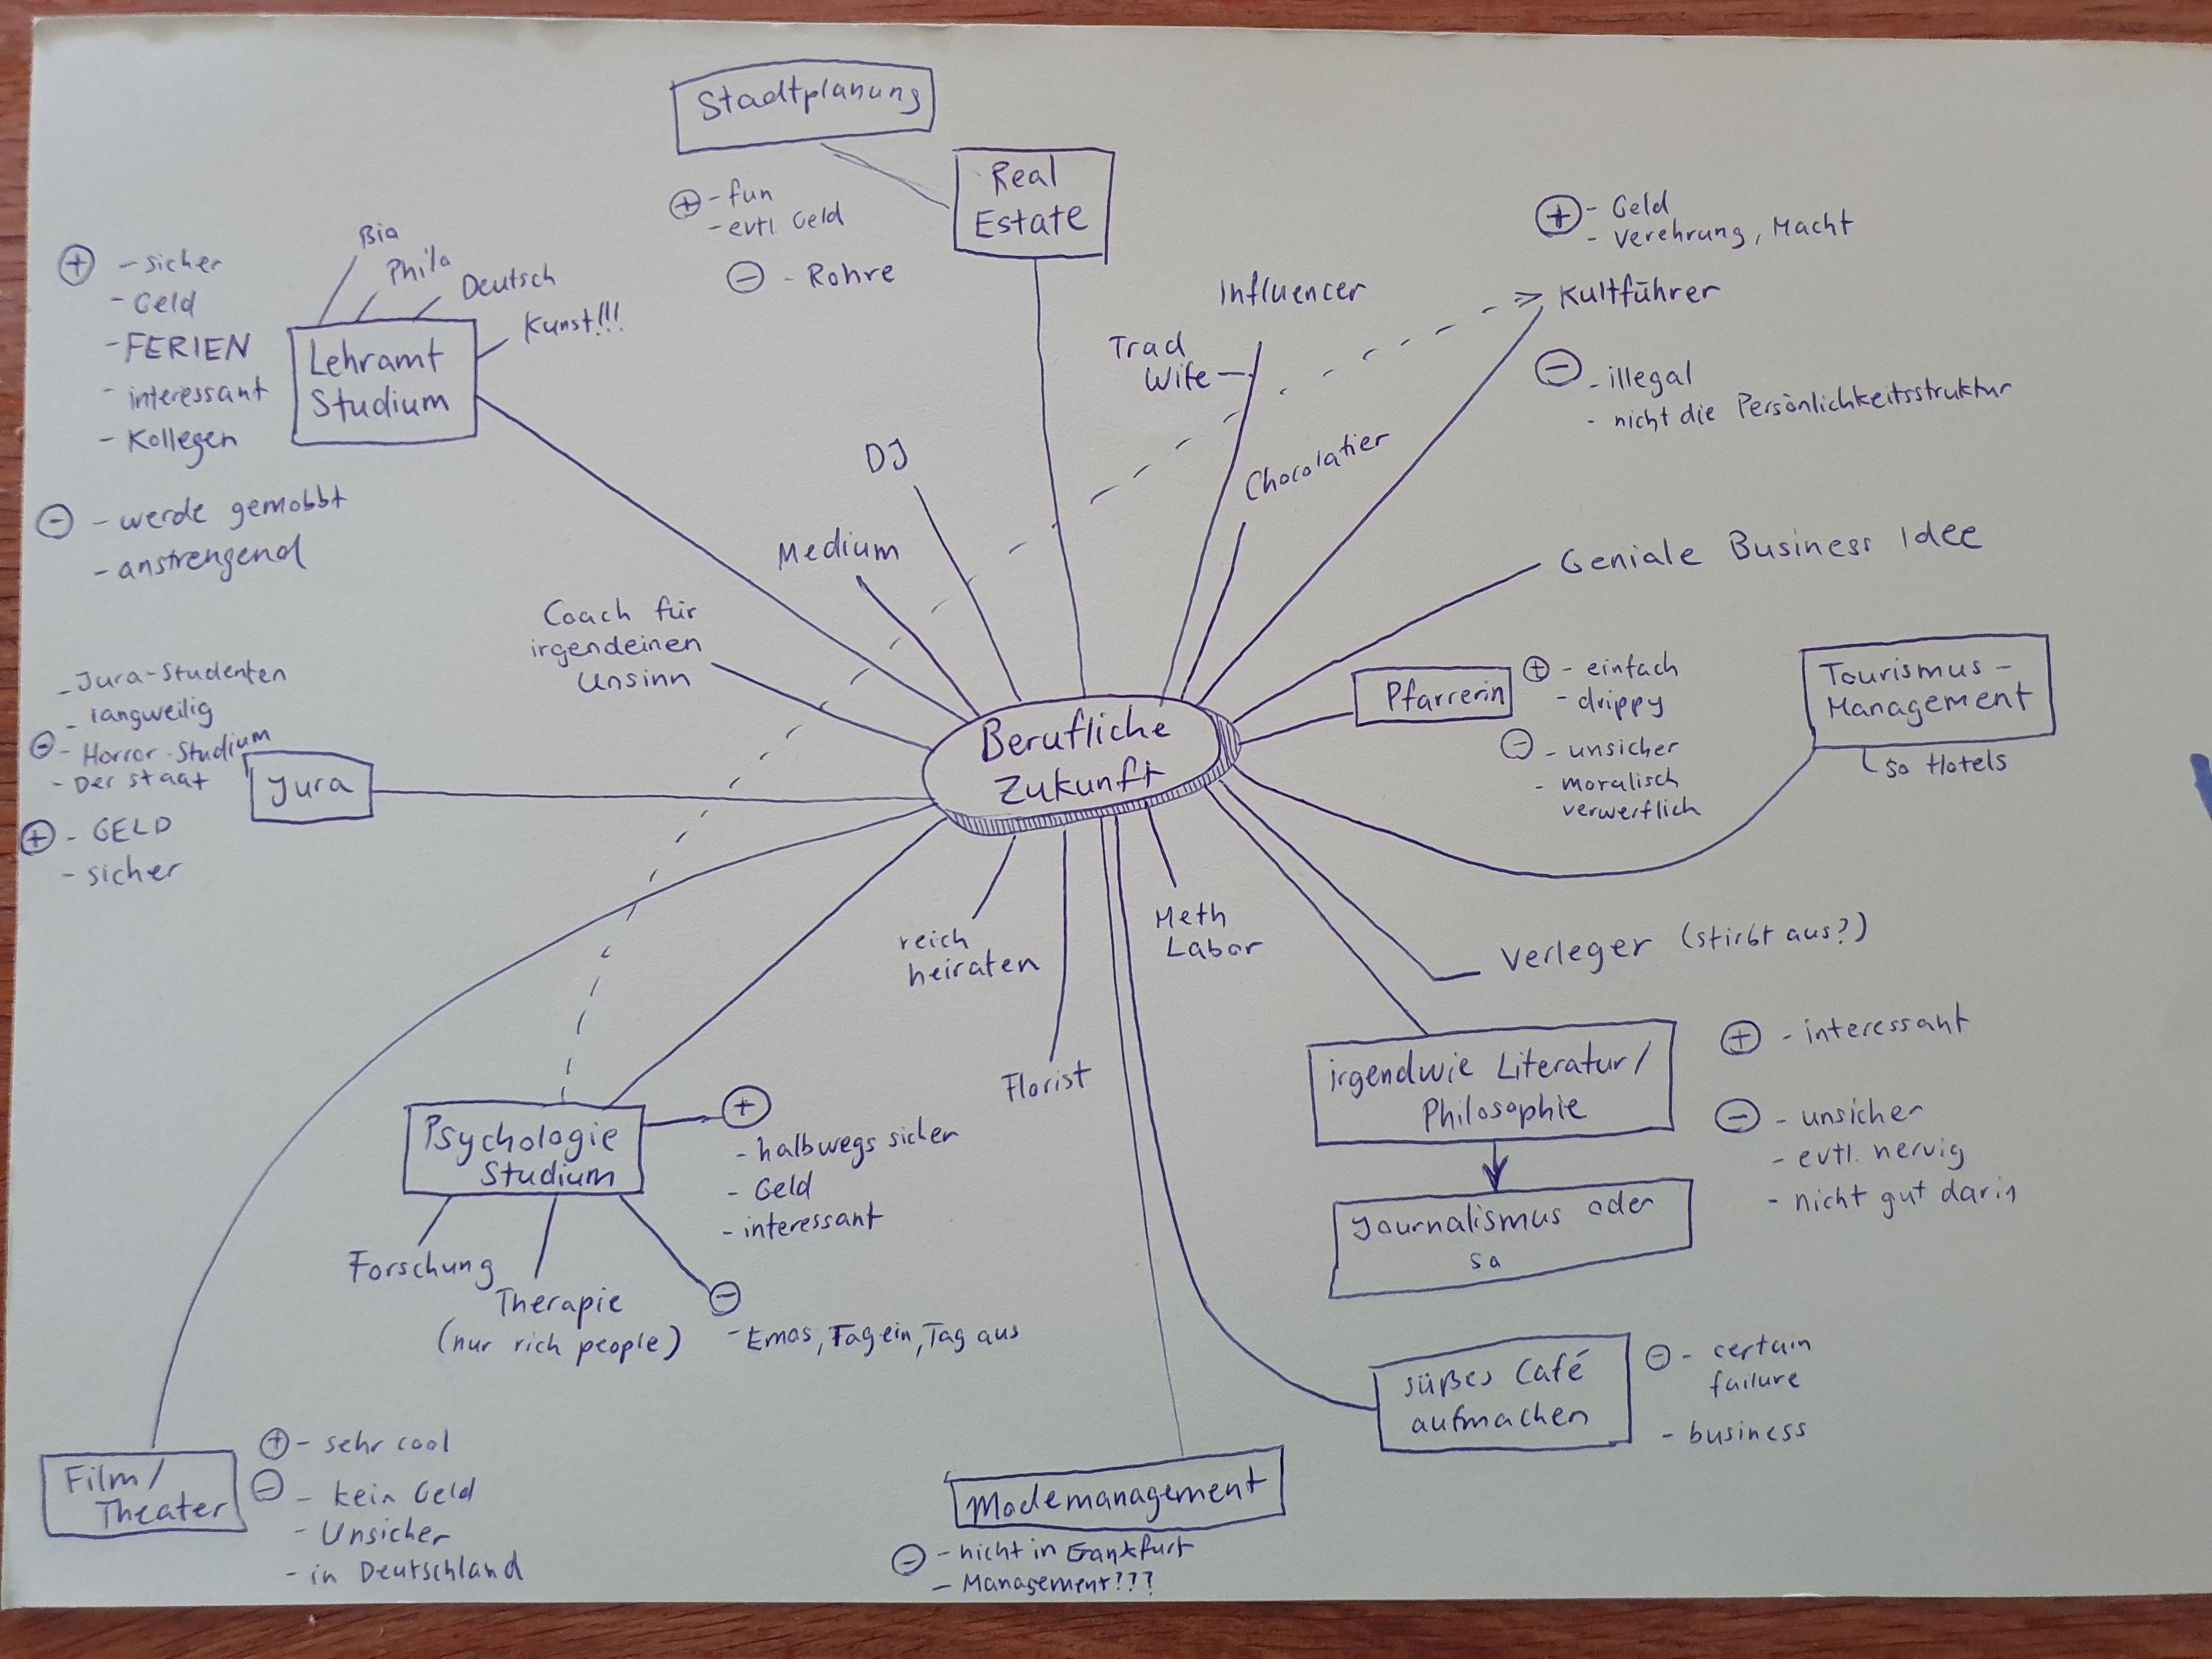 Stadtplanung
Real
Estate
+ - fun
- evtl. Geld
- - Rohre
+ - Geld
- Verehrung, Macht
Kultführer
- - illegal
- nicht die Persönlichkeitsstruktur
Influencer
Trad
Wife
Chocolatier
DJ
Medium
Coach für
irgendeinen
Unsinn
Bio
Philo
Deutsch
Kunst!!!
Lehramt
Studium
+ - sicher
- Geld
- FERIEN
- interessant
- Kollegen
- - werde gemobbt
- anstrengend
Geniale Business Idee
Pfarrerin
+ - einfach
- drippy
- - unsicher
- moralisch
verwerflich
Tourismus-
Management
so Hotels
Berufliche
Zukunft
- Jura-Studenten
- langweilig
- - Horror-Studium
- Der Staat
Jura
+ - GELD
- sicher
reich
heiraten
Florist
Meth
Labor
Verleger (stirbt aus?)
irgendwie Literatur/
Philosophie
+ - interessant
- - unsicher
- evtl. nervig
- nicht gut darin
Journalismus oder
so
Psychologie
Studium
+
- halbwegs sicher
- Geld
- interessant
Forschung
Therapie
(nur rich people)
-
- Emos, Tag ein, Tag aus
süßes Café
aufmachen
- - certain
failure
- business
Film/
Theater
+ - sehr cool
- - kein Geld
- Unsicher
- in Deutschland
Modemanagement
- - nicht in Frankfurt
- Management???